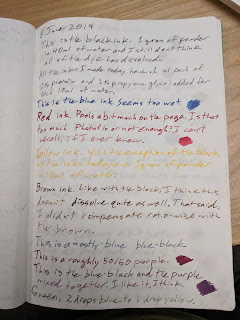 8 June 2019
This is the black ink. 1 gram of powder
in 40ml of water and I still don't think
all of the dye has dissolved.
All the inks I made today have 1ml each of
isopropanol and propylene glycol added for
each 10ml of water.
This is the blue ink. Seems too wet.
Red ink. Pools a bit much on the page. Is that
too much Photoflo or not enough? I can't
recall, if I ever knew.
Yellow ink. With the exception of the black,
all the inks today are 1 gram of powder
Brown ink. Like with the black, I think this
doesn't dissolve quite as well. That said,
I didn't compensate ratio-wise with
the brown.
This is a mostly-blue blue-black
This is a roughly 50/50 purple.
This is the blue black and the purple
mixed together. I like it, I think.
Green, 2 drops blue to 1 drop yellow.